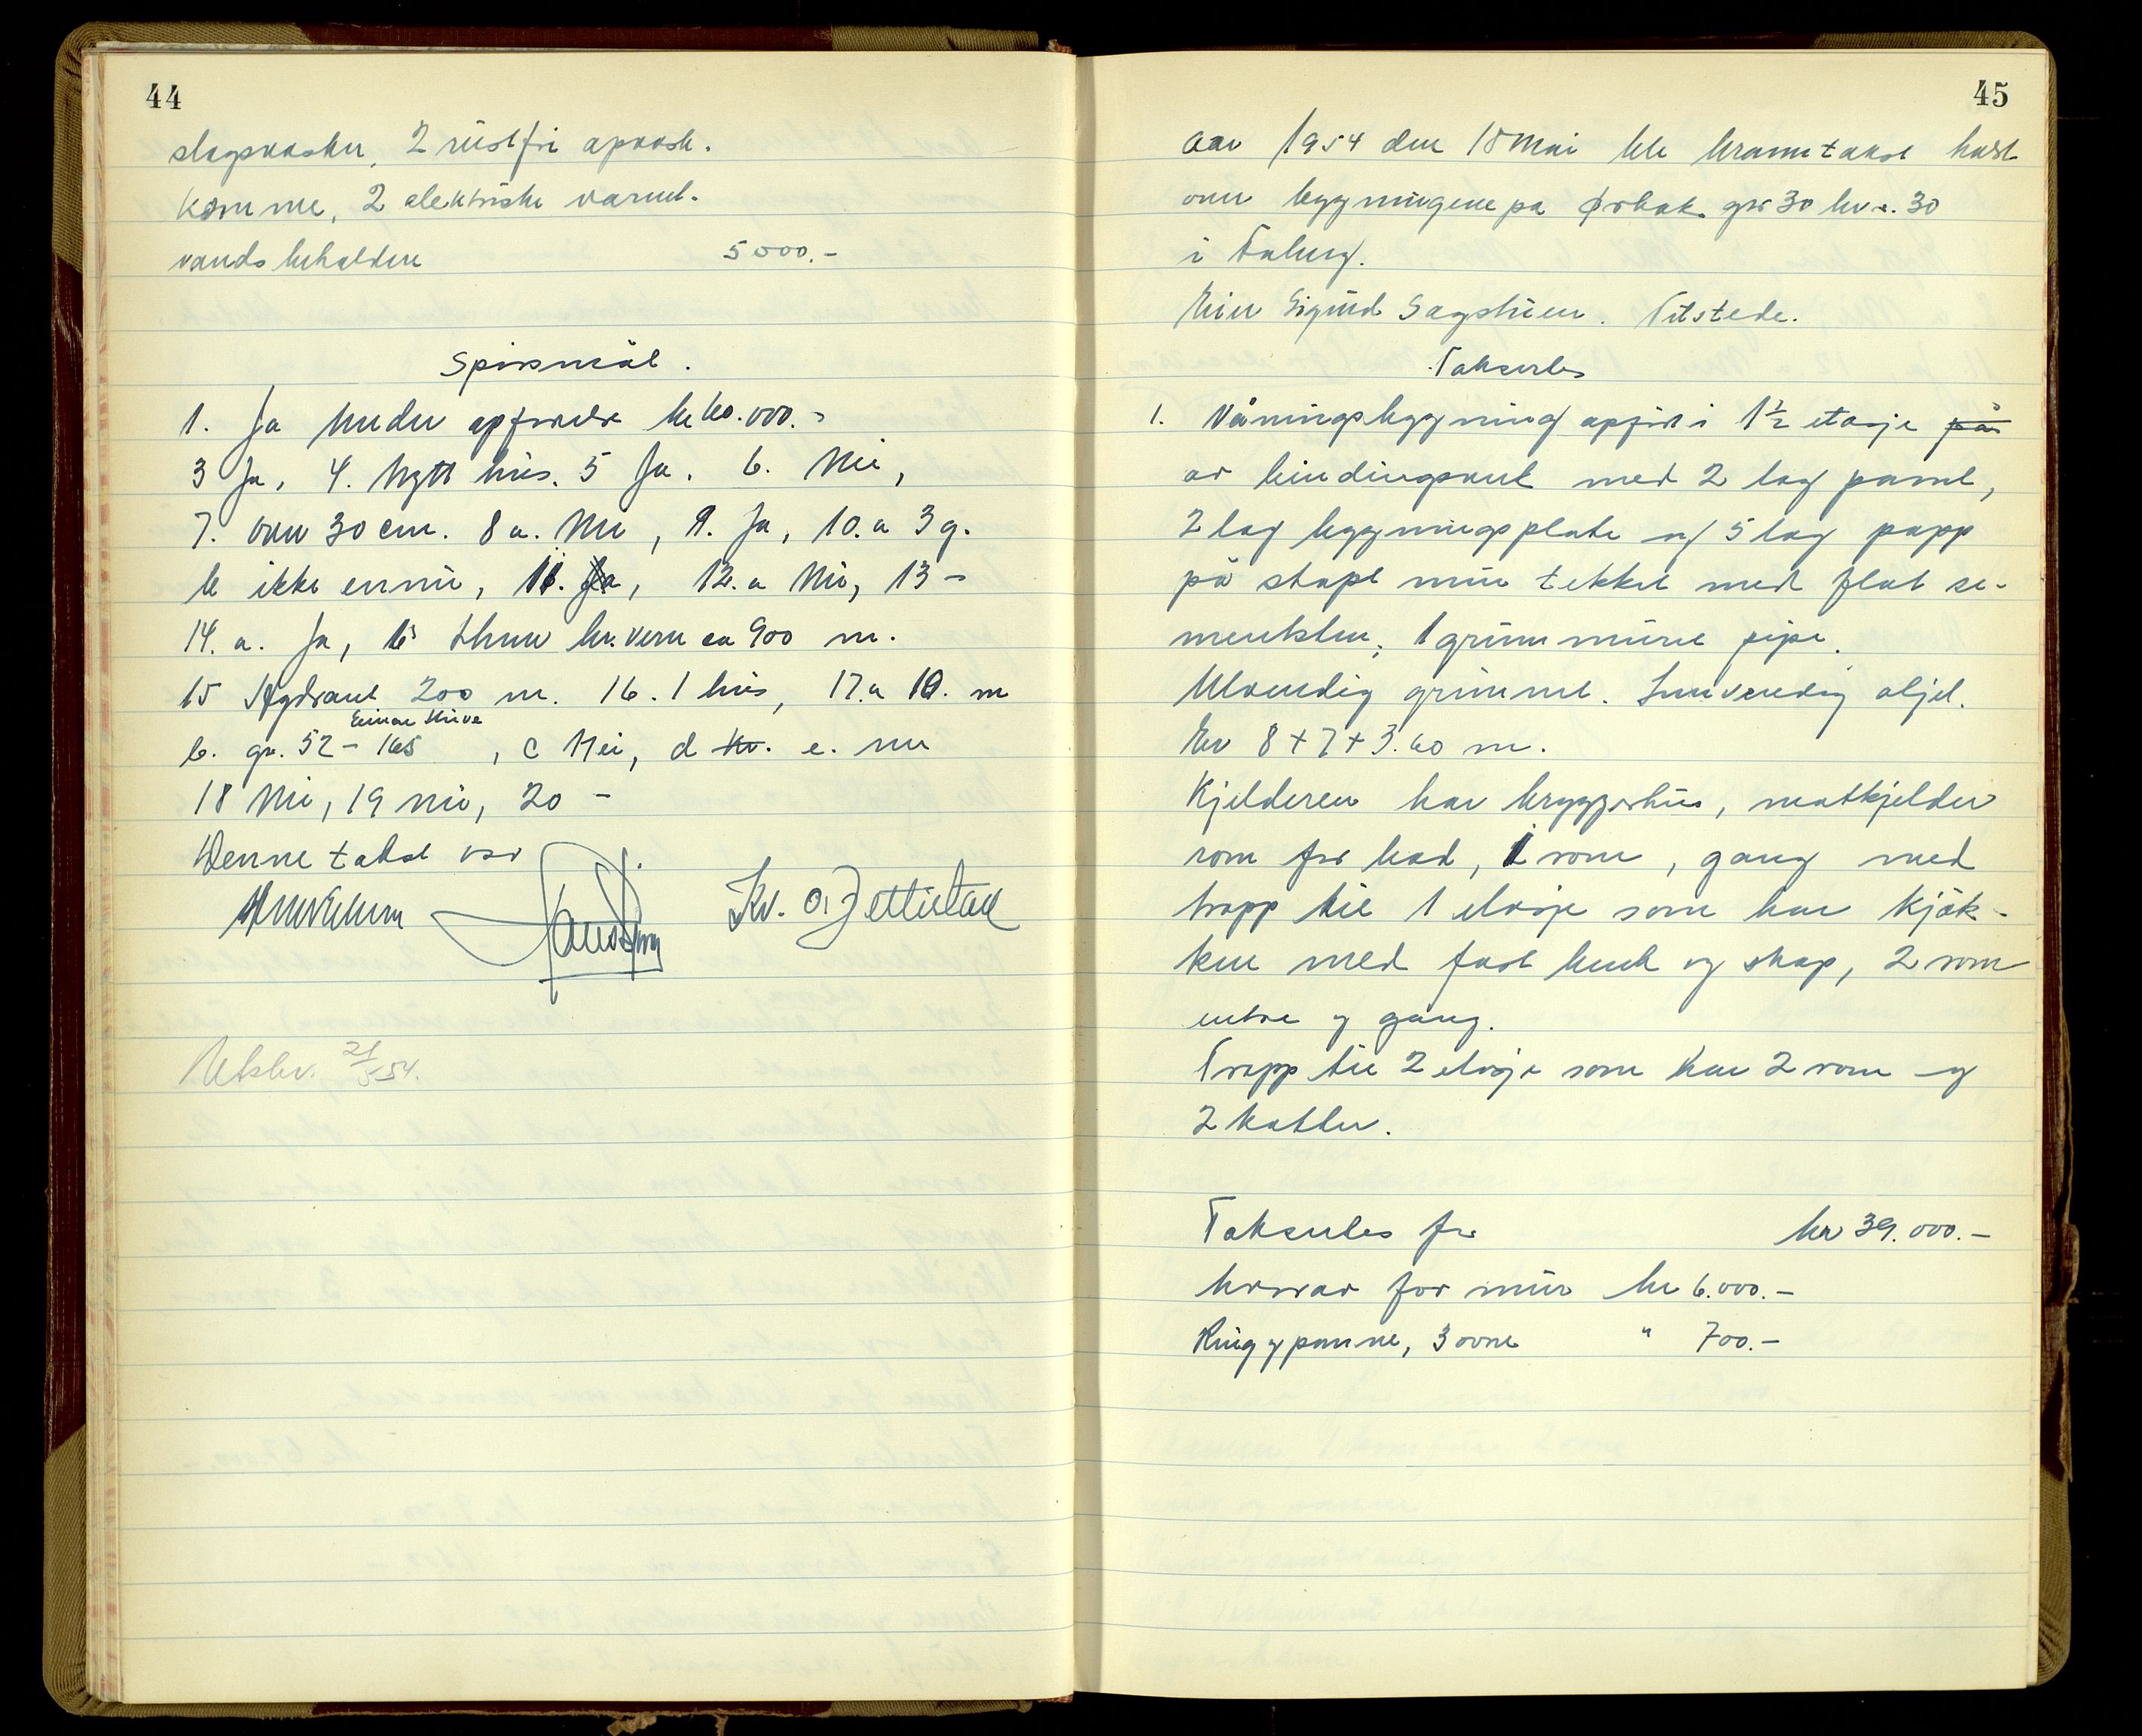 44
slagsvasker, 2 rustfri opvask.
komme, 2 elektriske varmt.
vands beholdere 5000.-
Spörsmål.
1. Ja under opförelse kr 60.000.-
3 Ja, 4. Nytt hus. 5 Ja. 6. Nei,
7. over 30 cm. 8 a. Nei, 9. Ja, 10. a 3 g.
b ikke ennu, 11. Ja, 12. a Nei, 13 -
14. a. Ja, b Lhmr br.vern ca 900 m.
15 Hydrant 200 m. 16. 1 hus, 17. a 10. m
Einar Hove
b. gr. 52 - 165, c Nei, d kr. e. nei
18 Nei, 19 nei, 20 -
Denne takst var
Kv. O. Jettestad
Utskr. 21/5 54.
45
Aar 1954 den 18 Mai ble branntakst holdt
over bygningene på Örbak gnr 30 bnr. 30
i Faberg.
Eier Sigurd Sagstuen. Tilstede.
Takseres
1. Våningsbygning opfört i 1½ etasje på
av bindingsverk med 2 lag panel,
2 lag bygningsplate og 5 lag papp
på stöpt mur tekket med flat se-
mentsten, 1 grunnmuret pipe.
Utvendig grunnet. Innvendig oljet.
Er 8 + 7 + 3.60 m.
Kjelderen har bryggerhus, matkjelder
rom for bad, 1 rom, gang med
trapp til 1 etasje som har kjök-
ken med fast benk og skap, 2 rom
entre og gang.
Trapp til 2 etasje som har 2 rom og
2 kotter.
Takseres for kr 39.000.-
hvorav for mur kr 6.000.-
Ring og panne, 3 ovne " 700.-